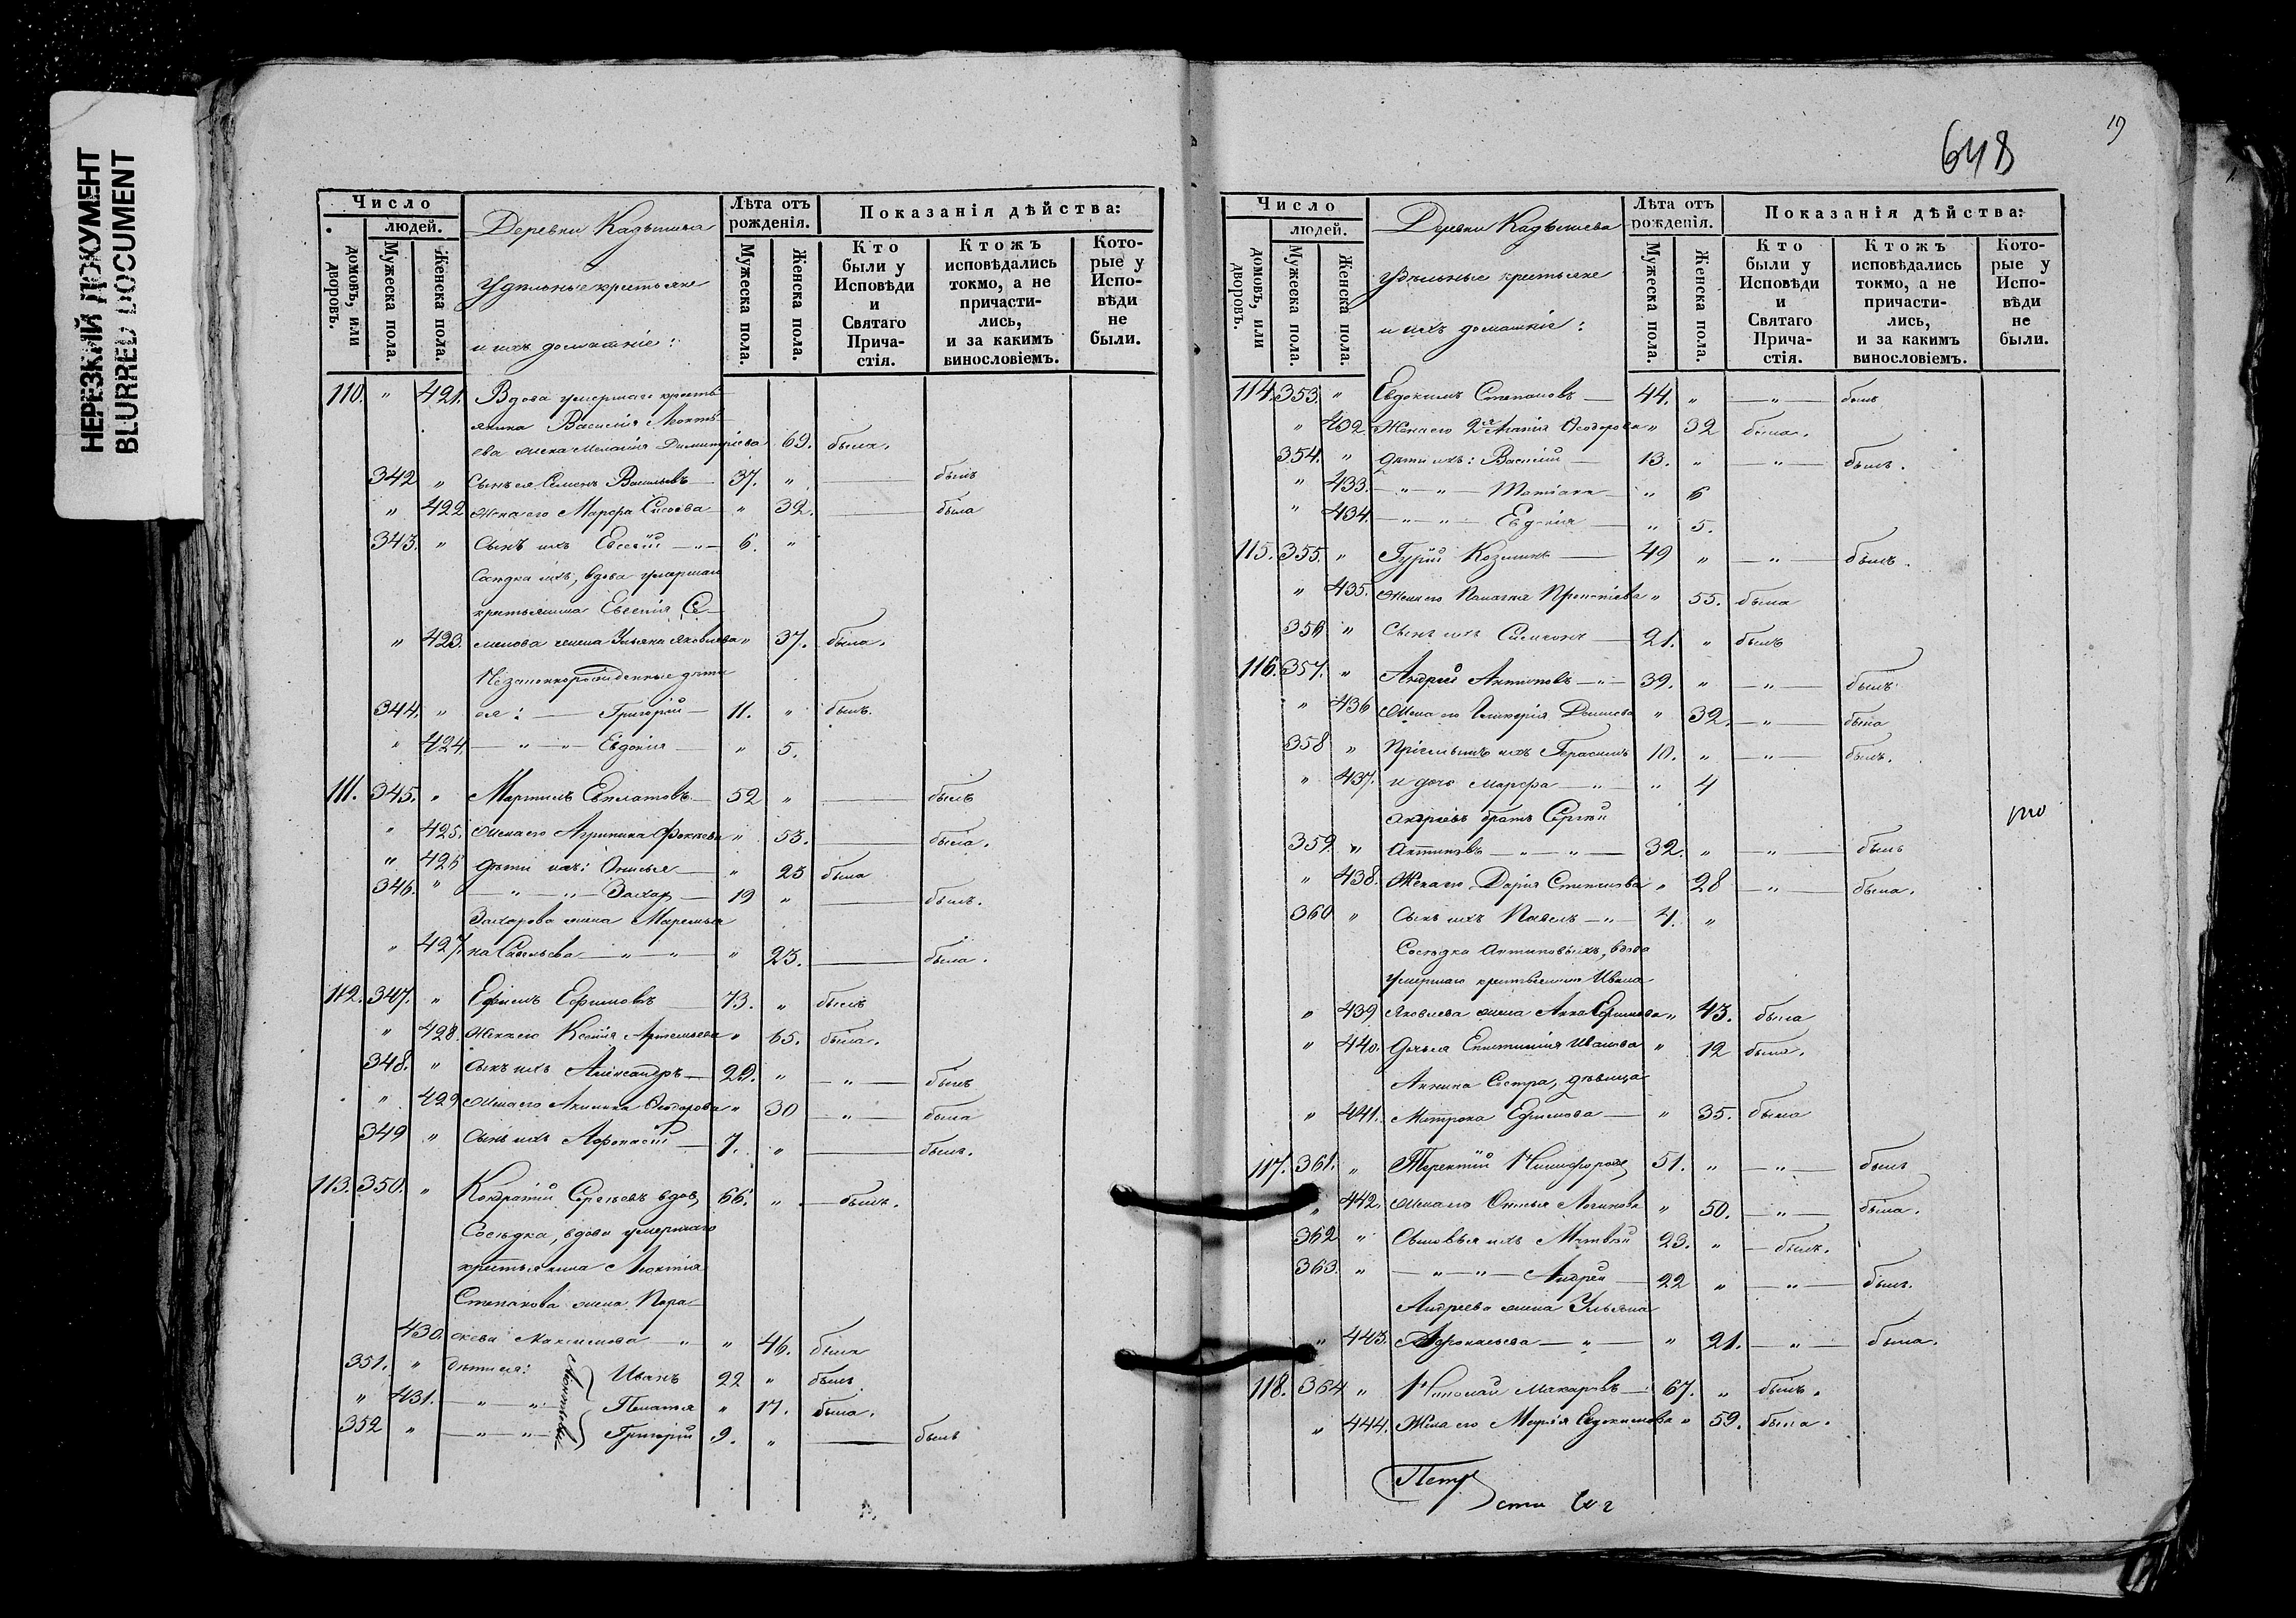 НЕРЕЗКИЙ ДОКУМЕНТ
BLURRED DOCUMENT
Число
людей.
домовъ, или дворовъ.
Мужеска пола.
Женска пола.
Деревни Кадышева
удѣльные крестьяне
и ихъ домашніе:
Лѣта отъ рожденія.
Мужеска пола.
Женска пола.
Показанія дѣйства:
Кто были у Исповѣди и Святаго Причастія.
Ктожъ исповѣдались токмо, а не причастились, и за какимъ винословіемъ.
Которые у Исповѣди не были.
110. " 421. Вдова умершаго кресть-
янина Василія Леонть-
ева жена Меланія Димитріева 69. была.
342 " Сынъ ея Семенъ Васильевъ — 37. " — былъ
" 422 жена его Марфа Сысоева " 32. — была
343. " Сынъ ихъ Евсевій — " — 6. "
Сосѣдка ихъ, вдова умершаго
крестьянина Евсенія Се-
" 423. менова жена Ульяна Яковлева " 37. была.
Незаконнорожденные дѣти
344. " ея: — Григорій — 11. " былъ.
" 424. — " — " — Евдокія — " 5.
111. 345. " Мартинъ Евплатовъ — 52 " — былъ
" 425. Жена его Агрипина Фокаева " 53. — была.
" 426 дѣти ихъ: Онисья — " 25 была
346. " — " — " — Захаръ — 19 " — былъ.
Захарова жена Маремья-
" 427. на Савельева — " — " " 23. — была.
112. 347. " Ефимъ Ефимовъ — 73. " былъ
" 428. Жена его Ксенія Артемьева " 65. была.
348. " Сынъ ихъ Александръ — 29. " — " — былъ
" 429 Жена его Акилина Ѳеодорова " 30 — " — была
349 " Сынъ ихъ Афонасій — 7. " — былъ.
113. 350. " Кондратій Сергеевъ вдов. 66. " — былъ.
Сосѣдка, вдова умершаго
крестьянина Леонтія
Степанова жена Пара-
430. скева Максимова — " " 46. была
351. " дѣти ея: Иванъ 22 " былъ
" 431. — " — " Пелагея " 17. была.
352 " — " — " Григорій 9. " — былъ
Леонтьевы
648
19
Число
людей.
домовъ, или дворовъ.
Мужеска пола.
Женска пола.
Деревни Кадышева
удѣльные крестьяне
и ихъ домашніе:
Лѣта отъ рожденія.
Мужеска пола.
Женска пола.
Показанія дѣйства:
Кто были у Исповѣди и Святаго Причастія.
Ктожъ исповѣдались токмо, а не причастились, и за какимъ винословіемъ.
Которые у Исповѣди не были.
114. 353. " Евдокимъ Степановъ — 44. " — " — былъ
" 432 Жена его Ѳеодорова " 32 была.
354. " Дѣти ихъ: Василій — 13. " — " — былъ.
" 433. — " — " — Татіана — " 6
" 434. — " — " — Евдокія — " 5.
115. 355. " Гурій Козминъ — 49 " — " — былъ.
" 435. Жена его Пелагея Прокопіева " 55. была
356 " Сынъ ихъ Симеонъ — 21. " былъ
116. 357. " Андрей Антиповъ — " — 39. " — " — былъ.
" 436 Жена его Гликерія Данилова " 32. — " — была
358 " Пріемышъ ихъ Герасимъ 10. " — " — былъ.
" 437. и дочь Марфа — " — " 4
Андреевъ братъ Сергѣй
359. " Антиповъ — " — " — 32. " — " — былъ
" 438. Жена его Дарія Степанова " 28 — " — была.
360 " Сынъ ихъ Павелъ — " — 4. "
Сосѣдка Антиповыхъ, вдова
умершаго крестьянина Ивана
" 439 Яковлева жена Анна Ефимова " 43. была
" 440. Дочь ея Епистимія Иванова " 12 была.
Аннина Сестра, дѣвица
" 441. Матрона Ефимова — " 35. была
117. 361. " Терентій Никифоровъ 51. " — " — былъ
" 442. Жена его Онисья Логинова " 50. — " — была.
362 " Сыновья ихъ Матвѣй 23. " — былъ.
363. " — " — " — Андрей — 22 " — " — былъ.
Андреева жена Ульяна
" 443. Афонасьева — " — " 21. — " — была.
118. 364 " Николай Макаровъ — 67. " былъ.
" 444. Жена его Марія Евдокимова " 59. была.